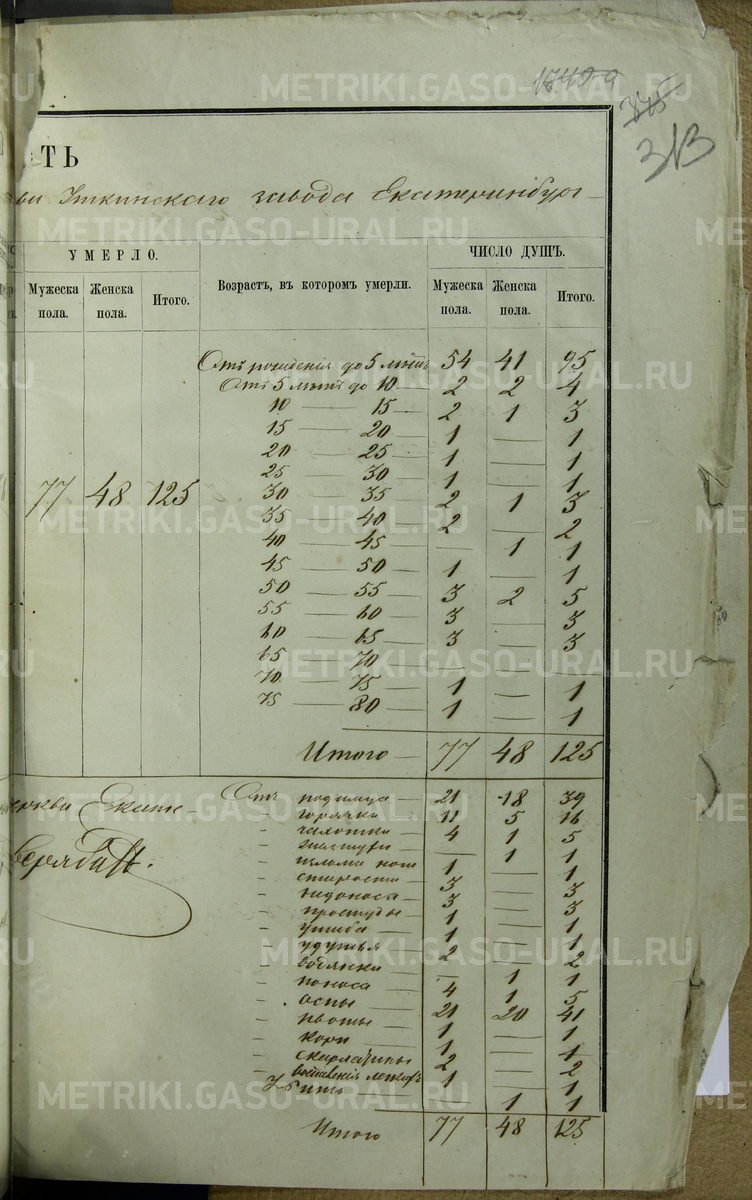 17409
375
313
ТЬ
ви Уткинскаго завода Екатеринбург
УМЕРЛО. ЧИСЛО ДУШЪ.
Мужеска пола. Женска пола. Итого. Возрастъ, въ которомъ умерли. Мужеска пола. Женска пола. Итого.
Отъ рожденія до 5 лѣтъ 54 41 95
Отъ 5 лѣтъ до 10 — 2 2 4
10 — 15 — 2 1 3
15 — 20 — 1 — 1
20 — 25 — 1 — 1
25 — 30 — 1 — 1
77 48 125 30 — 35 — 2 1 3
35 — 40 — 2 — 2
40 — 45 — — 1 1
45 — 50 — 1 — 1
50 — 55 — 3 2 5
55 — 60 — 3 — 3
60 — 65 — 3 — 3
65 70 — —
70 — 75 — 1 — 1
75 — 80 — 1 — 1
Итого — 77 48 125
церкви Екате-
Отъ родимца — 21 18 39
„ горячки 11 5 16
„ чахотки 4 1 5
„ — 1 1
„ излома ноги 1 — 1
„ старости 3 — 3
„ недоноса 3 — 3
„ простуды 1 — 1
„ ушиба 1 — 1
„ удушья 2 — 2
„ водянки — 1 1
„ поноса 4 1 5
„ оспы 21 20 41
„ рвоты 1 — 1
„ кори 1 — 1
„ скарлатины 2 — 2
„ воспаленія легкихъ 1 — 1
Убитъ — 1 1
Итого 77 48 125
METRIKI.GASO-URAL.RU